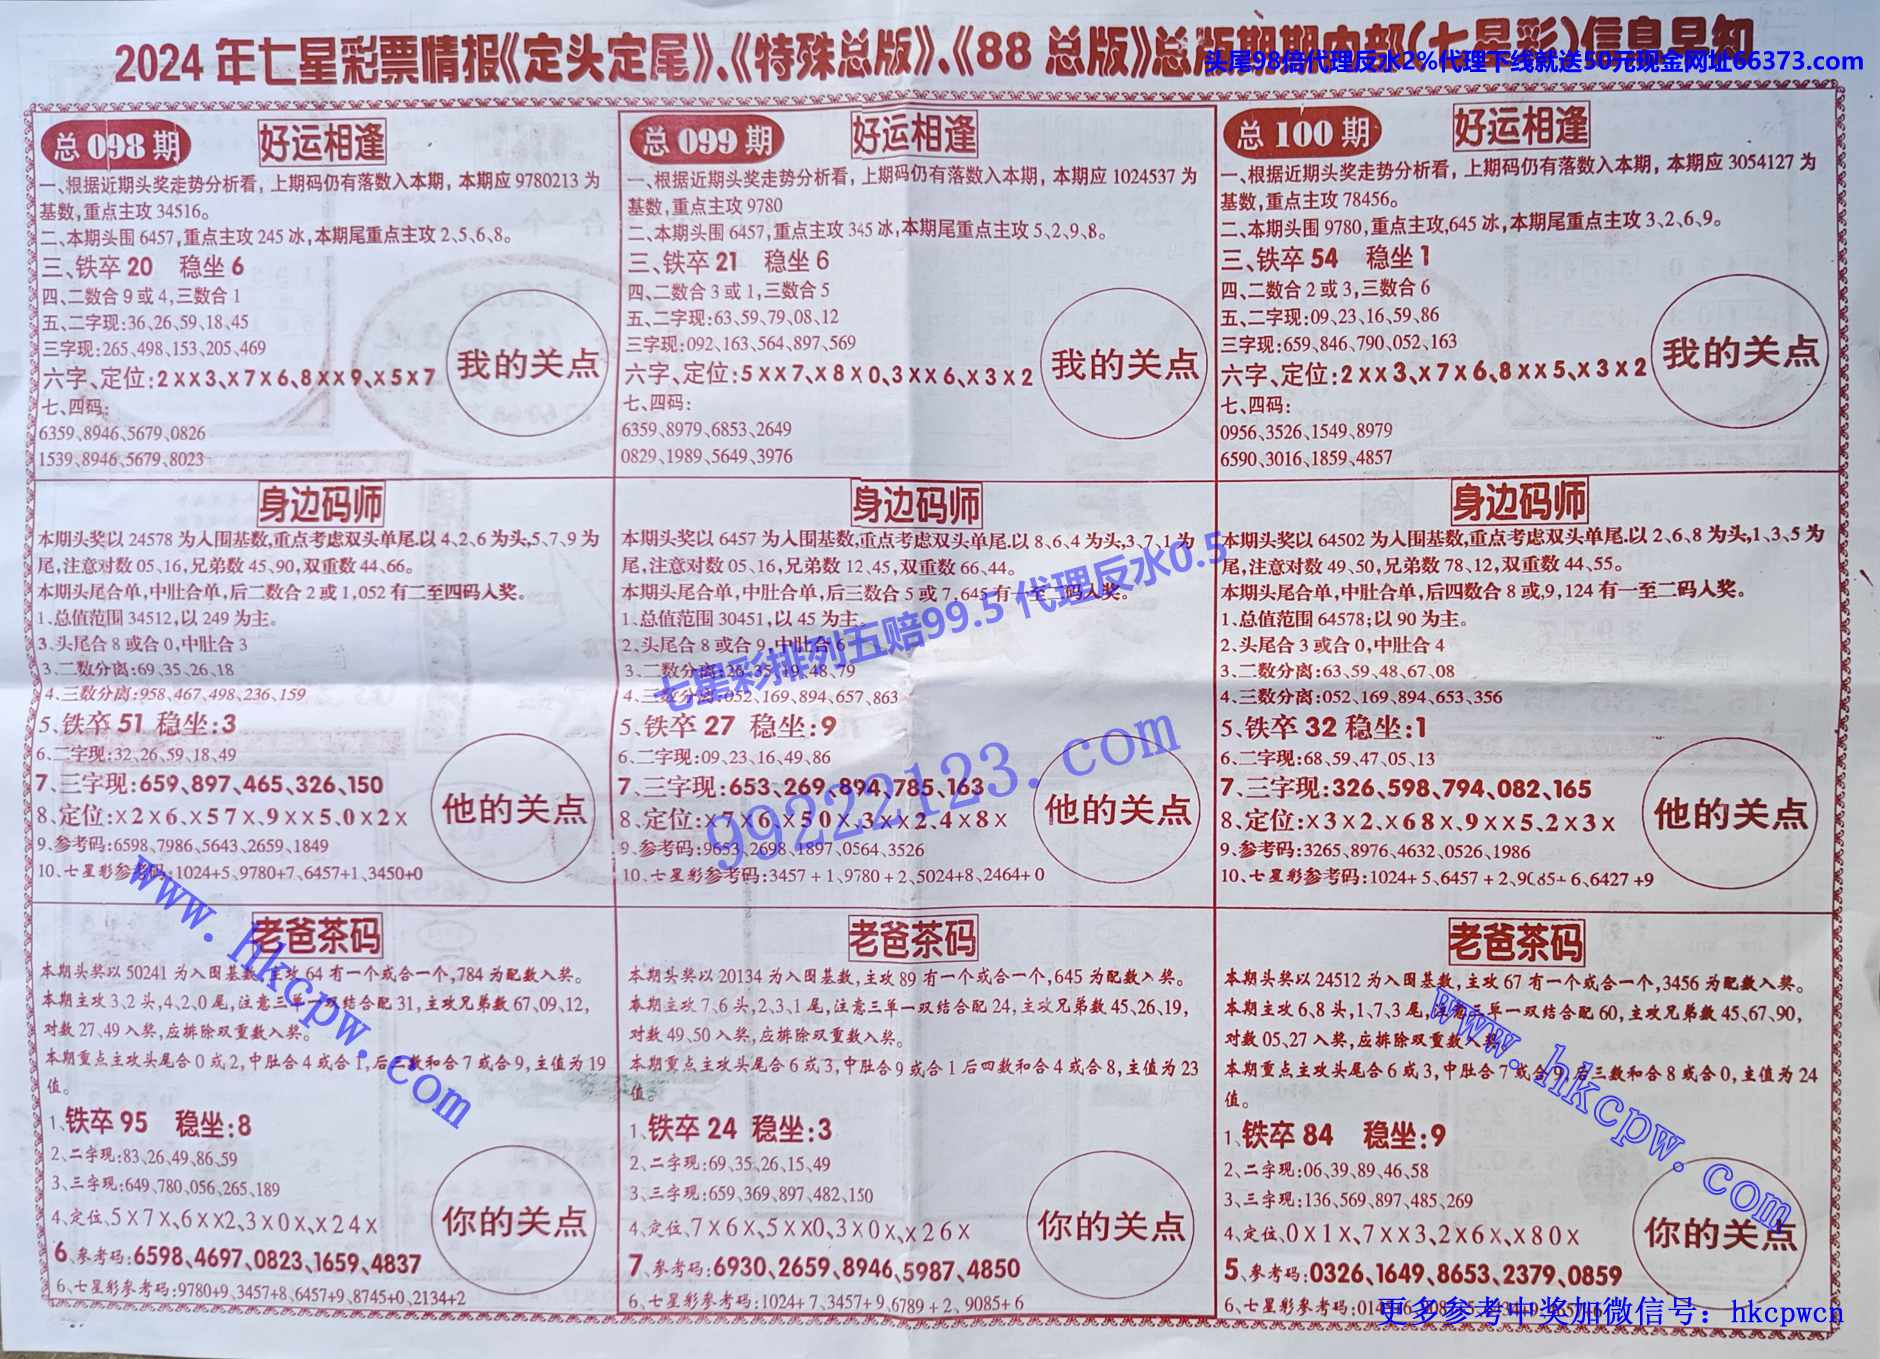 2024年七星彩票情报《定头定尾》、《特殊总版》、《88总版》总版期期内部(七星彩)信息早知
头尾98倍代理反水2%代理下线就送50元现金网址66373.com
总098期 好运相逢
一、根据近期头奖走势分析看，上期码仍有落数入本期，本期应9780213为
基数,重点主攻34516。
二、本期头围6457,重点主攻245冰,本期尾重点主攻2、5、6、8。
三、铁卒20 稳坐6
四、二数合9或4,三数合1
五、二字现:36、26、59、18、45
三字现:265、498、153、205、469
六字、定位:2××3、×7×6、8××9、×5×7
七、四码:
6359、8946、5679、0826
1539、8946、5679、8023
我的关点
总099期 好运相逢
一、根据近期头奖走势分析看，上期码仍有落数入本期，本期应1024537为
基数,重点主攻9780
二、本期头围6457,重点主攻345冰,本期尾重点主攻5、2、9、8。
三、铁卒21 稳坐6
四、二数合3或1,三数合5
五、二字现:63、59、79、08、12
三字现:092、163、564、897、569
六字、定位:5××7、×8×0、3××6、×3×2
七、四码:
6359、8979、6853、2649
0829、1989、5649、3976
我的关点
总100期 好运相逢
一、根据近期头奖走势分析看，上期码仍有落数入本期，本期应3054127为
基数,重点主攻78456。
二、本期头围9780,重点主攻,645冰,本期尾重点主攻3、2、6、9。
三、铁卒54 稳坐1
四、二数合2或3,三数合6
五、二字现:09、23、16、59、86
三字现:659、846、790、052、163
六字、定位:2××3、×7×6、8××5、×3×2
七、四码:
0956、3526、1549、8979
6590、3016、1859、4857
我的关点
身边码师
本期头奖以24578为入围基数,重点考虑双头单尾.以4、2、6为头,5、7、9为
尾,注意对数05、16,兄弟数45、90,双重数44、66。
本期头尾合单,中肚合单,后二数合2或1,052有二至四码入奖。
1.总值范围34512,以249为主。
3.头尾合8或合0,中肚合3
3.二数分离:69、35、26、18
4.三数分离:958、467、498、236、159
5.铁卒51 稳坐:3
6.二字现:32、26、59、18、49
7.三字现:659、897、465、326、150
8、定位:×2×6、×57×、9××5、0×2×
9.参考码:6598、7986、5643、2659、1849
10、七星彩参考码:1024+5、9780+7、6457+1、3450+0
他的关点
身边码师
本期头奖以6457为入围基数,重点考虑双头单尾.以8、6、4为头,3、7、1为
尾,注意对数05、16,兄弟数12、45,双重数66、44。
本期头尾合单,中肚合单,后三数合5或7,645有一至二码入奖。
1.总值范围30451,以45为主。
2.头尾合8或合9,中肚合6
3.二数分离:26、35、19、48、79
4.三数分离:052、169、894、657、863
5.铁卒27 稳坐:9
6.二字现:09、23、16、49、86
7.三字现:653、269、894、785、163
8、定位:×7×6、×50×、3××2、4×8×
9.参考码:9653、2698、1897、0564、3526
10、七星彩参考码:3457+1、9780+2、5024+8、2464+0
他的关点
七星彩排列五赔99.5 代理反水0.5
99222123.com
身边码师
本期头奖以64502为入围基数,重点考虑双头单尾.以2、6、8为头,1、3、5为
尾,注意对数49、50,兄弟数78、12,双重数44、55。
本期头尾合单,中肚合单,后四数合8或,9,124有一至二码入奖。
1.总值范围64578;以90为主。
2.头尾合3或合0,中肚合4
3.二数分离:63、59、48、67、08
4.三数分离:052、169、894、653、356
5.铁卒32 稳坐:1
6.二字现:68、59、47、05、13
7.三字现:326、598、794、082、165
8、定位:×3×2、×68×、9××5、2×3×
9.参考码:3265、8976、4632、0526、1986
10、七星彩参考码:1024+5、6457+2、9085+6、6427+9
他的关点
老爸茶码
本期头奖以50241为入围基数,主攻64有一个或合一个,784为配数入奖。
本期主攻3、2头,4、2、0尾,注意三单一双结合配31,主攻兄弟数67、09、12,
对数27、49入奖,应排除双重数入奖。
本期重点主攻头尾合0或2,中肚合4或合1,后三数和合7或合9,主值为19
值。
1、铁卒95 稳坐:8
2、二字现:83、26、49、86、59
3、三字现:649、780、056、265、189
4、定位、5×7×、6××2、3×0×、×24×
6、参考码:6598、4697、0823、1659、4837
6、七星彩参考码:9780+9、3457+8、6457+9、8745+0、2134+2
你的关点
www.hkcpw.com
老爸茶码
本期头奖以20134为入围基数,主攻89有一个或合一个,645为配数入奖。
本期主攻7、6头,2、3、1尾,注意三单一双结合配24,主攻兄弟数45、26、19,
对数49、50入奖,应排除双重数入奖。
本期重点主攻头尾合6或3,中肚合9或合1后四数和合4或合8,主值为23
值。
1、铁卒24 稳坐:3
2、二字现:69、35、26、15、49
3、三字现:659、369、897、482、150
4、定位、7×6×、5××0、3×0×、×26×
7、参考码:6930、2659、8946、5987、4850
6、七星彩参考码:1024+7、3457+9、6789+2、9085+6
你的关点
老爸茶码
本期头奖以24512为入围基数,主攻67有一个或合一个,3456为配数入奖。
本期主攻6、8头,1、7、3尾,注意三单一双结合配60,主攻兄弟数45、67、90,
对数05、27入奖,应排除双重数入奖
本期重点主攻头尾合6或3,中肚合7或合9,后三数和合8或合0,主值为24
值。
1、铁卒84 稳坐:9
2、二字现:06、39、89、46、58
3、三字现:136、569、897、485、269
4、定位、0×1×、7××3、2×6×、×80×
5、参考码:0326、1649、8653、2379、0859
6、七星彩参考码:
你的关点
www.hkcpw.com
更多参考中奖加微信号：hkcpwcn